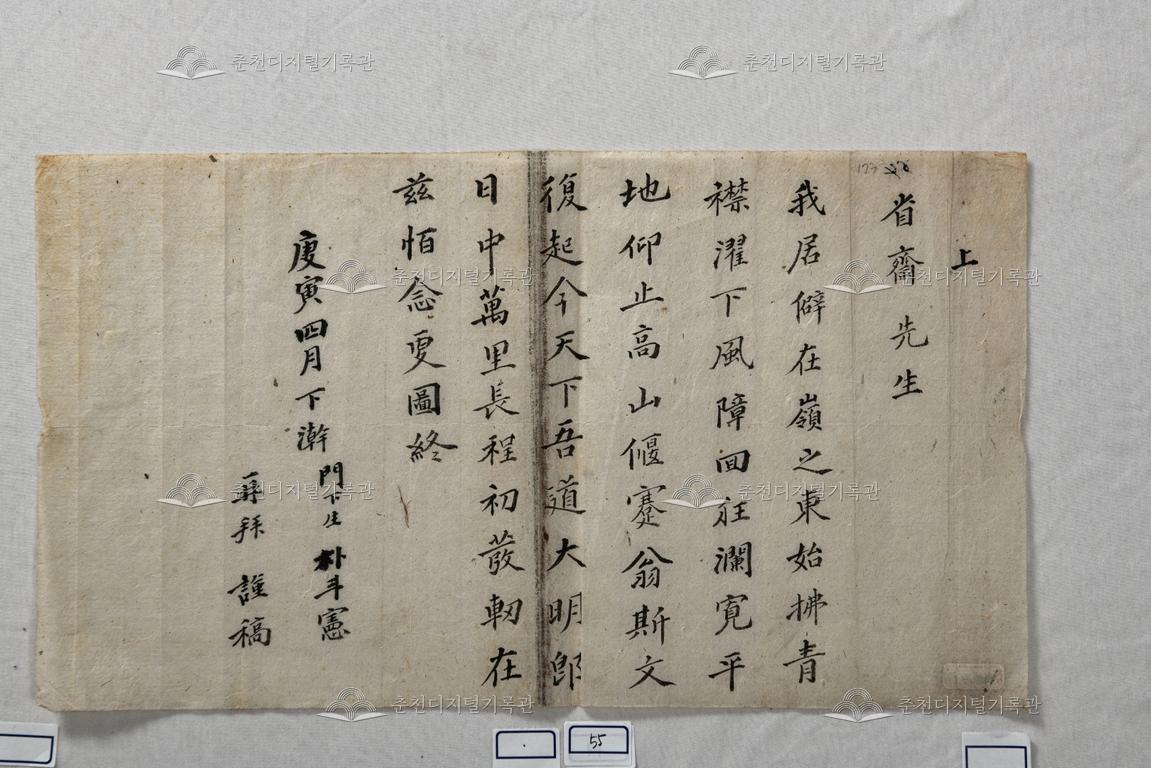 上
省齋先生
我居僻在嶺之東始拂青
襟濯下風障回狂瀾寬平
地仰止高山偃蹇翁斯文
復起今天下吾道大明郎
日中萬里長程初發軔在
兹怕念更圖終
庚寅四月下澣
門下生 朴斗憲
再拜 謹稿
춘천디지털기록관
춘천디지털기록관
춘천디지털기록관
춘천디지털기록관
춘천디지털기록관
춘천디지털기록관
춘천디지털기록관
춘천디지털기록관
55